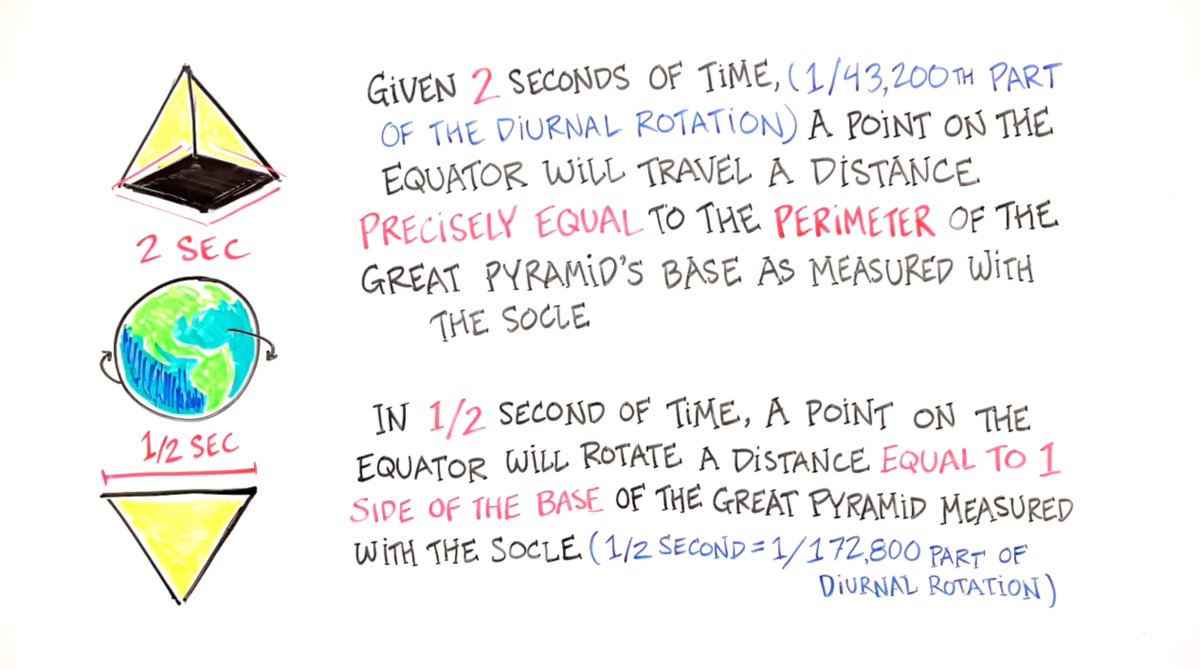 GIVEN 2 SECONDS OF TIME, (1/43,200TH PART
OF THE DIURNAL ROTATION) A POINT ON THE
EQUATOR WILL TRAVEL A DISTANCE
PRECISELY EQUAL TO THE PERIMETER OF THE
GREAT PYRAMID'S BASE AS MEASURED WITH
THE SOCLE
2 SEC
1/2 SEC
IN 1/2 SECOND OF TIME, A POINT ON THE
EQUATOR WILL ROTATE A DISTANCE EQUAL TO 1
SIDE OF THE BASE OF THE GREAT PYRAMID MEASURED
WITH THE SOCLE (1/2 SECOND = 1/172,800 PART OF
DIURNAL ROTATION)